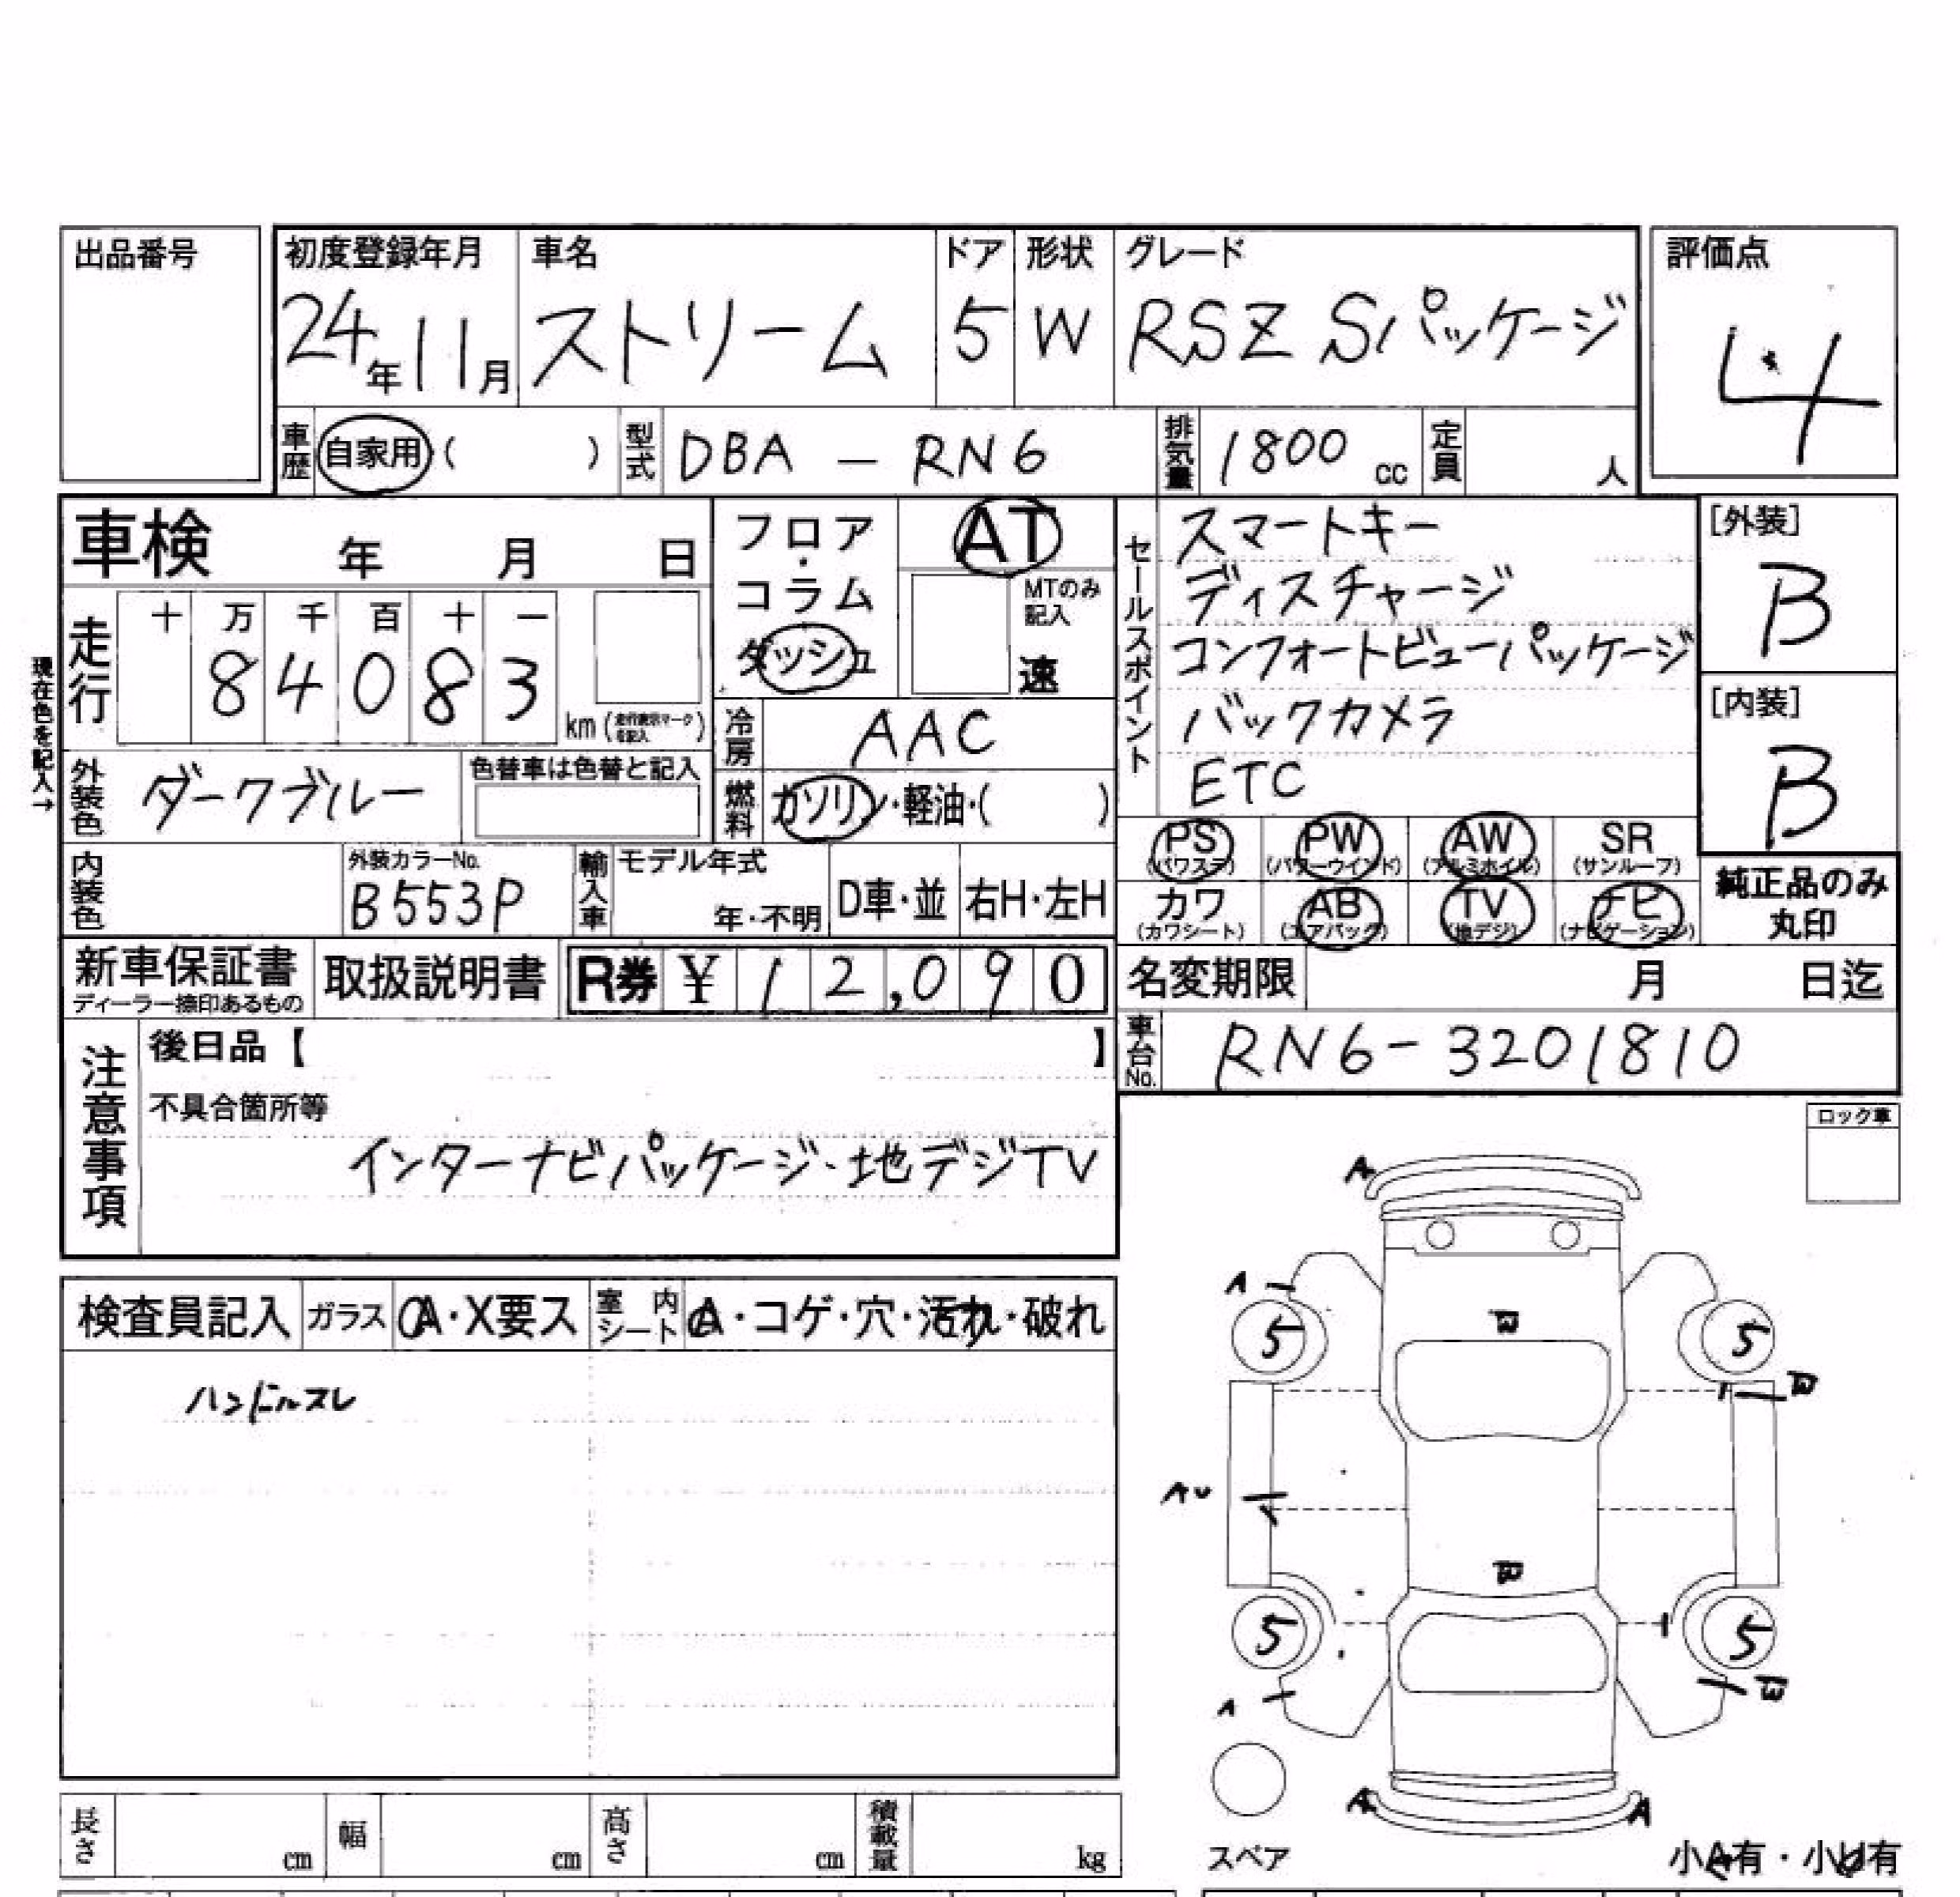 出品番号
初度登録年月 車名 ドア 形状 グレード 評価点
24年11月 ストリーム 5 W RSZ Sパッケージ 4
車歴 自家用 ( ) 型式 DBA - RN6 排気量 1800 cc 定員 人
車検 年 月 日
フロア・コラム
ダッシュ
AT
MTのみ記入
速
セールスポイント
スマートキー
ディスチャージ
コンフォートビューパッケージ
バックカメラ
ETC
[外装]
B
[内装]
B
現在色を記入→
走行 十 万 千 百 十 一
84083
km (走行表示マークを記入)
冷房 AAC
外装色 ダークブルー 色替車は色替と記入
燃料 ガソリン・軽油・( )
PS PW AW SR
(パワステ) (パワーウインド) (アルミホイル) (サンルーフ)
カワ AB TV ナビ
(カワシート) (エアバック) (地デジ) (ナビゲーション)
純正品のみ
丸印
内装色 外装カラーNo. B553P 輸入車 モデル年式 年・不明 D車・並 右H・左H
新車保証書 取扱説明書 R券 ¥12,090
ディーラー捺印あるもの
名変期限 月 日迄
車台No. RN6-3201810
注意事項
後日品【 】
不具合箇所等
インターナビパッケージ・地デジTV
ロック車
検査員記入 ガラス A・X要ス 室内シート A・コゲ・穴・汚れ・破れ
ハンドルスレ
A
A
5 5
AU
5 5
A
A A
スペア
小A有・小U有
長さ cm 幅 cm 高さ cm 積載量 kg